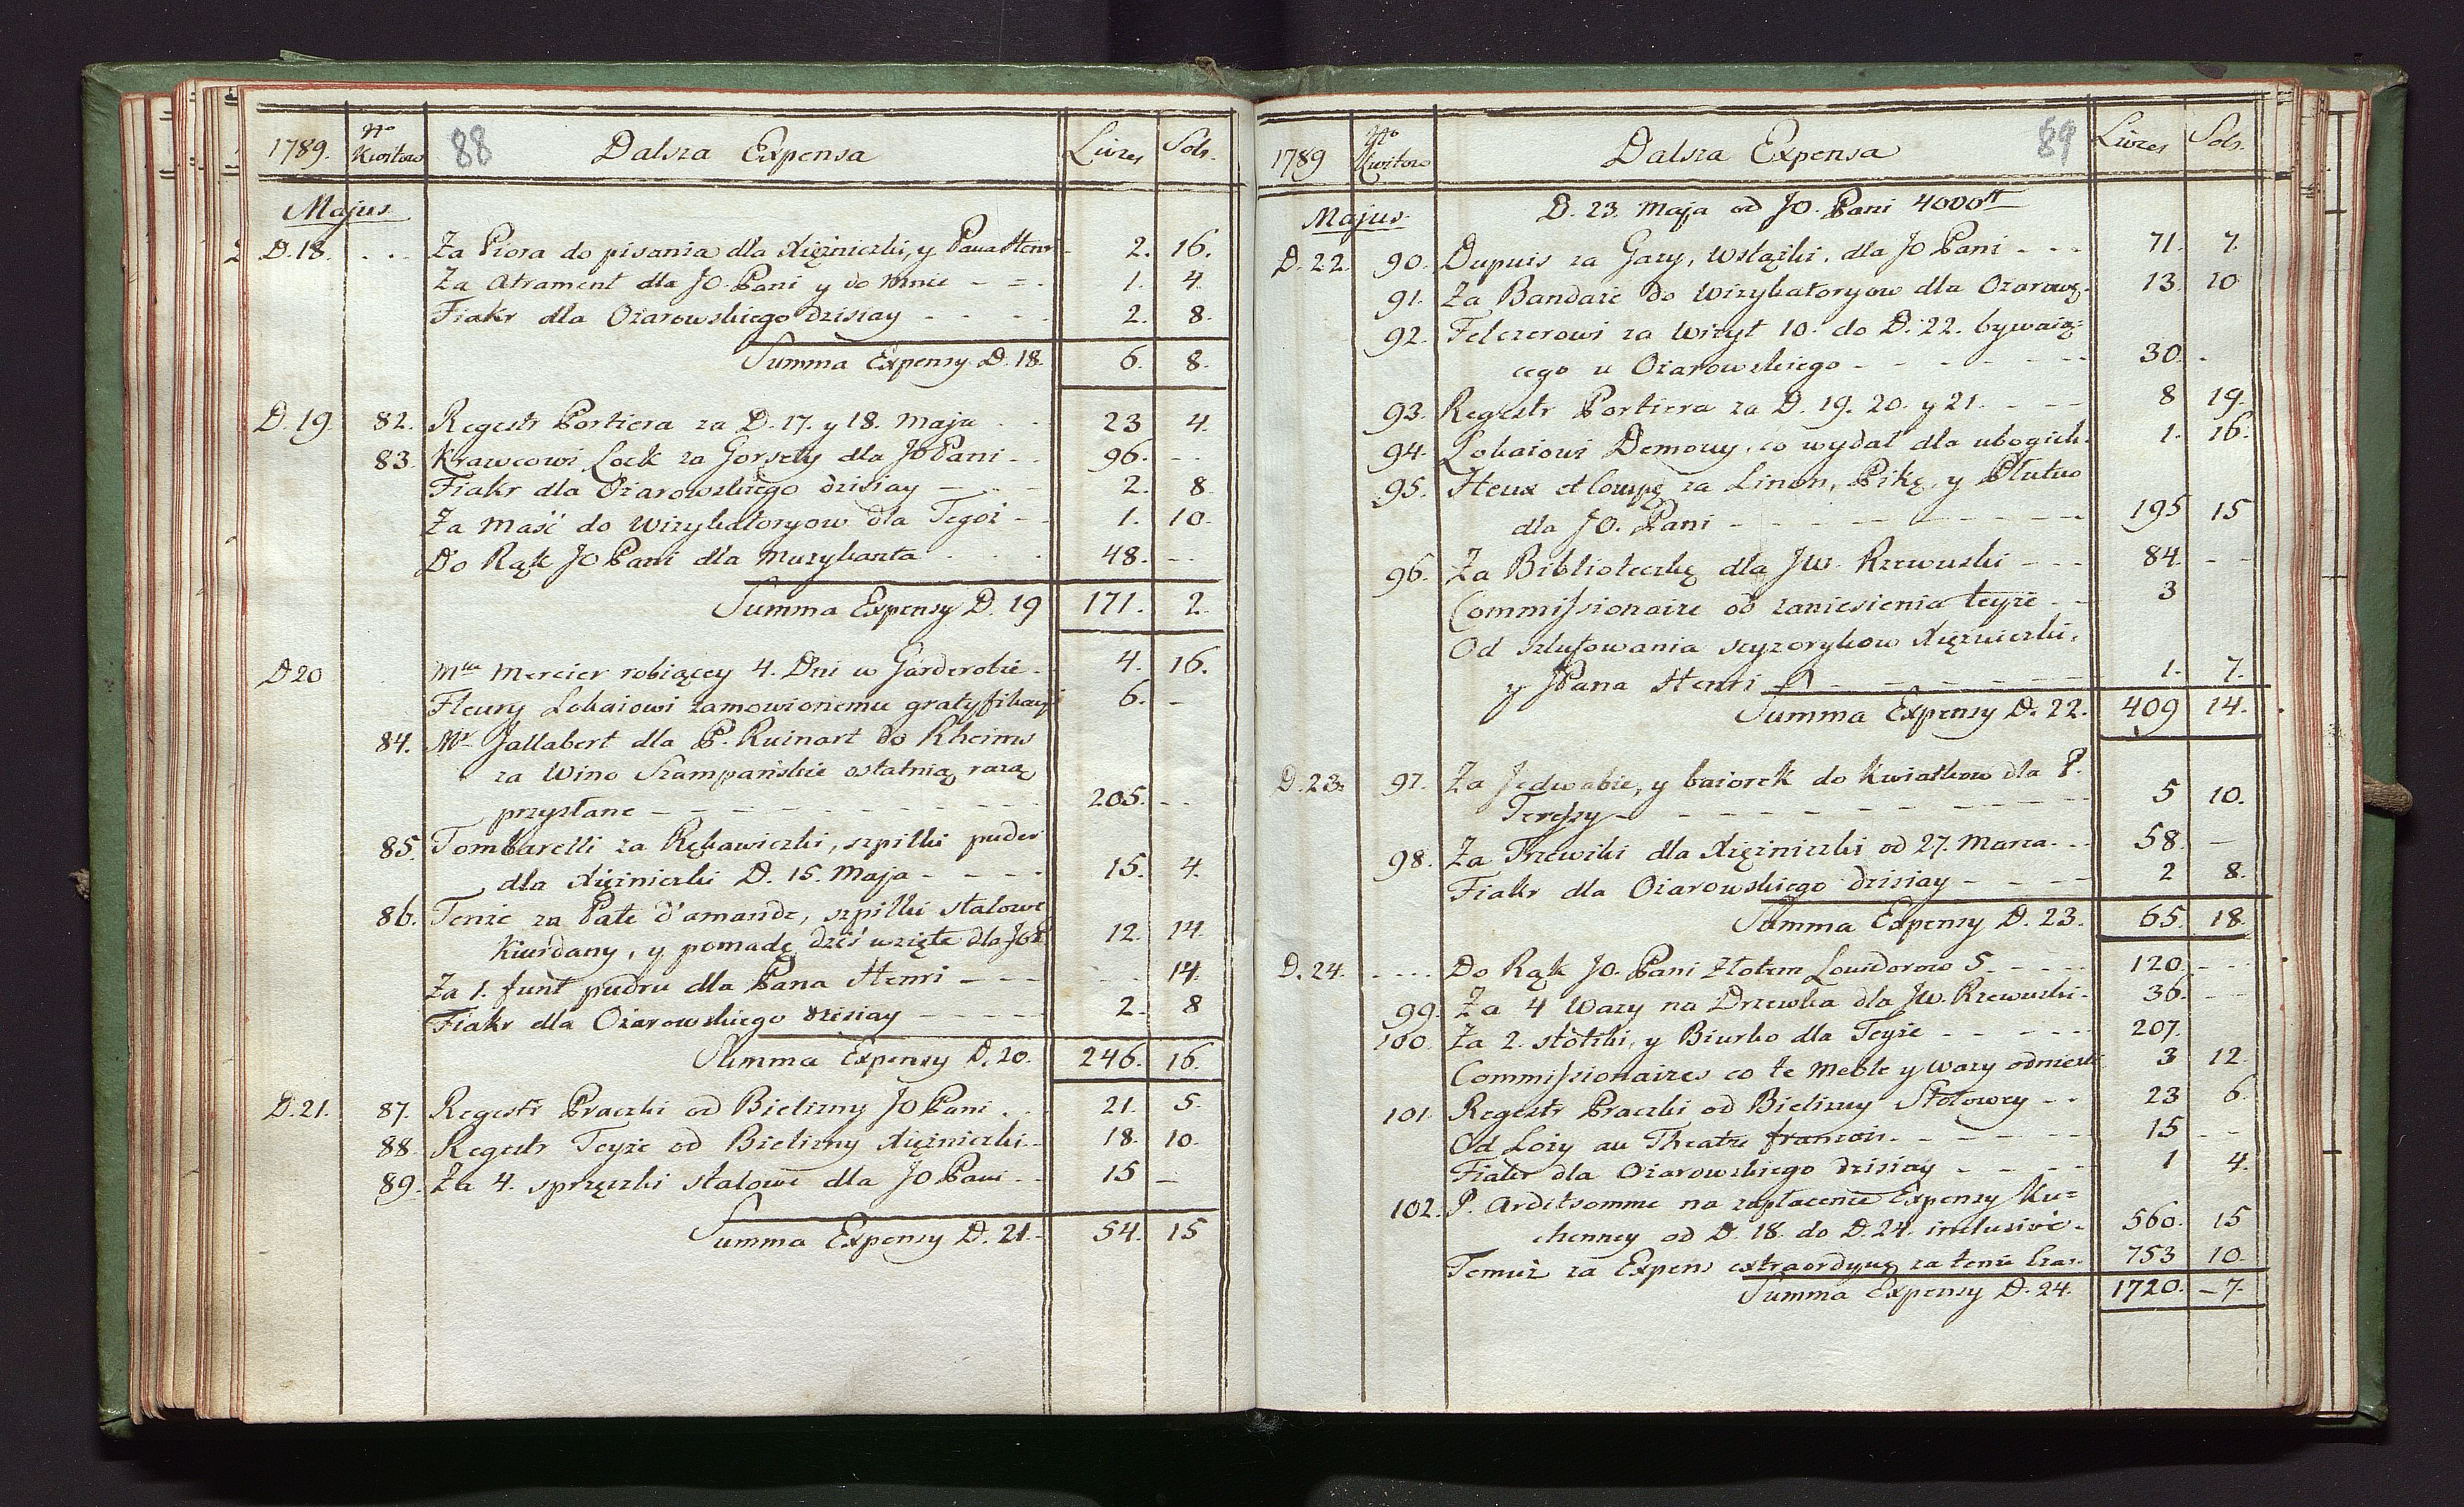 1789. No Kwitow 88 Dalsza Expensa Livres Sols.
Majus
D. 18. . . . Za Piora do pisania dla Xiężniczki, y Pana Henri 2. 16.
Za Atrament dla JO. Pani y do mnie - = - 1. 4.
Fiakr dla Ożarowskiego dzisiay - - - - 2. 8.
Summa Expensy D. 18. 6. 8.
D. 19. 82. Regestr Portiera za D. 17. y 18. Maja - - 23 4.
83. Krawcowi Lock za Gorsety dla JO Pani - - 96. - -
Fiakr dla Ożarowskiego dzisiay - - - 2. 8.
Za Maść do Wizykatoryow dla Tegoż - - 1. 10.
Do Rąk JO Pani dla Muzykanta - - - 48. - -
Summa Expensy D. 19 171. 2.
D 20 Mlle Mercier robiącey 4. Dni w Garderobie - 4. 16.
Fleury Lokaiowi zamowionemu gratyfikacyi 6. -
84. Mr Jallabert dla P. Ruinart do Rheims
za Wino Szampańskie ostatnią razą
przysłane - - - - - - - - - - 205. - -
85. Tombarelli za Rękawiczki, szpilki puder
dla Xiężniczki D. 15. Maja - - - - 15. 4.
86. Tenże za Pate d'amande, szpilki stalowe
Kurdany, y pomadę dziś wzięte dla JOP. 12. 14.
Za 1. funt pudru dla Pana Henri - - - - - 14.
Fiakr dla Ożarowskiego dzisiay - - - - - 2. 8
Summa Expensy D. 20. 246. 16.
D. 21. 87. Regestr Praczki od Bielizny JO Pani . . 21. 5.
88. Regestr Teyże od Bielizny Xiężniczki - 18. 10.
89. Za 4. sprzęczki stalowe dla JO Pani - - 15 -
Summa Expensy D. 21. - 54. 15
1789 No Kwitow Dalsza Expensa 89 Livres Sols.
D. 23. Maja od JO. Pani 4000tt
Majus
D. 22. 90. Dupuis za Gazy, Wstążki, dla JO Pani - - - 71. 7.
91. Za Bandaże do Wizykatoryow dla Ożarowsg. 13. 10
92. Felczerowi za Wizyt 10. do D. 22. bywaią=
cego u Ożarowskiego - - - - - - - 30. -
93. Regestr Portiera za D. 19. 20. y 21. - - - 8 19.
94. Lokaiowi Demouy, co wydał dla ubogich. 1. 16.
95. Heux et Coupé za Linon, Pikę, y Płutno
dla JO. Pani - - - - - - - - - - 195 15
96. Za Biblioteczkę dla JW. Rzewuski - - - 84. - -
Commissionaire od zaniesienia teyże - - 3
Od szlufowania scyzorykow Xiężniczki,
y JPana Henri - - - - - - - - 1. 7.
Summa Expensy D. 22. 409 14.
D. 23. 97. Za Jedwabie, y baiorek do Kwiatkow dla P.
Teressy - - - - - - - - - - 5 10.
98. Za Trzewiki dla Xiężniczki od 27. Marca - - 58. -
Fiakr dla Ożarowskiego dzisiay - - - - 2 8.
Summa Expensy D. 23. 65. 18.
D. 24. - - - - Do Rąk JO. Pani złotem Louidorow 5. - - - - 120 - - -
99. Za 4 Wazy na Drzewka dla JW. Rzewuski - 36. - -
100. Za 2. stołki, y Biurko dla Teyże - - - - - - 207.
Commissionaires co te Meble y Wazy odnieśli 3 12.
101. Regestr Praczki od Bielizny Stołowey - - 23 6.
Od Loży au Theatre francois. - - - - - - 15 - -
Fiakr dla Ożarowskiego dzisiay - - - - 1 4.
102. P. Arditsomme na zapłacenie Expensy Ku=
chenney od D. 18. do D. 24. inclusive - 560. 15
Temuż za Expens extraordyną za tenże Czas - 753 10.
Summa Expensy D. 24. 1720. - 7.